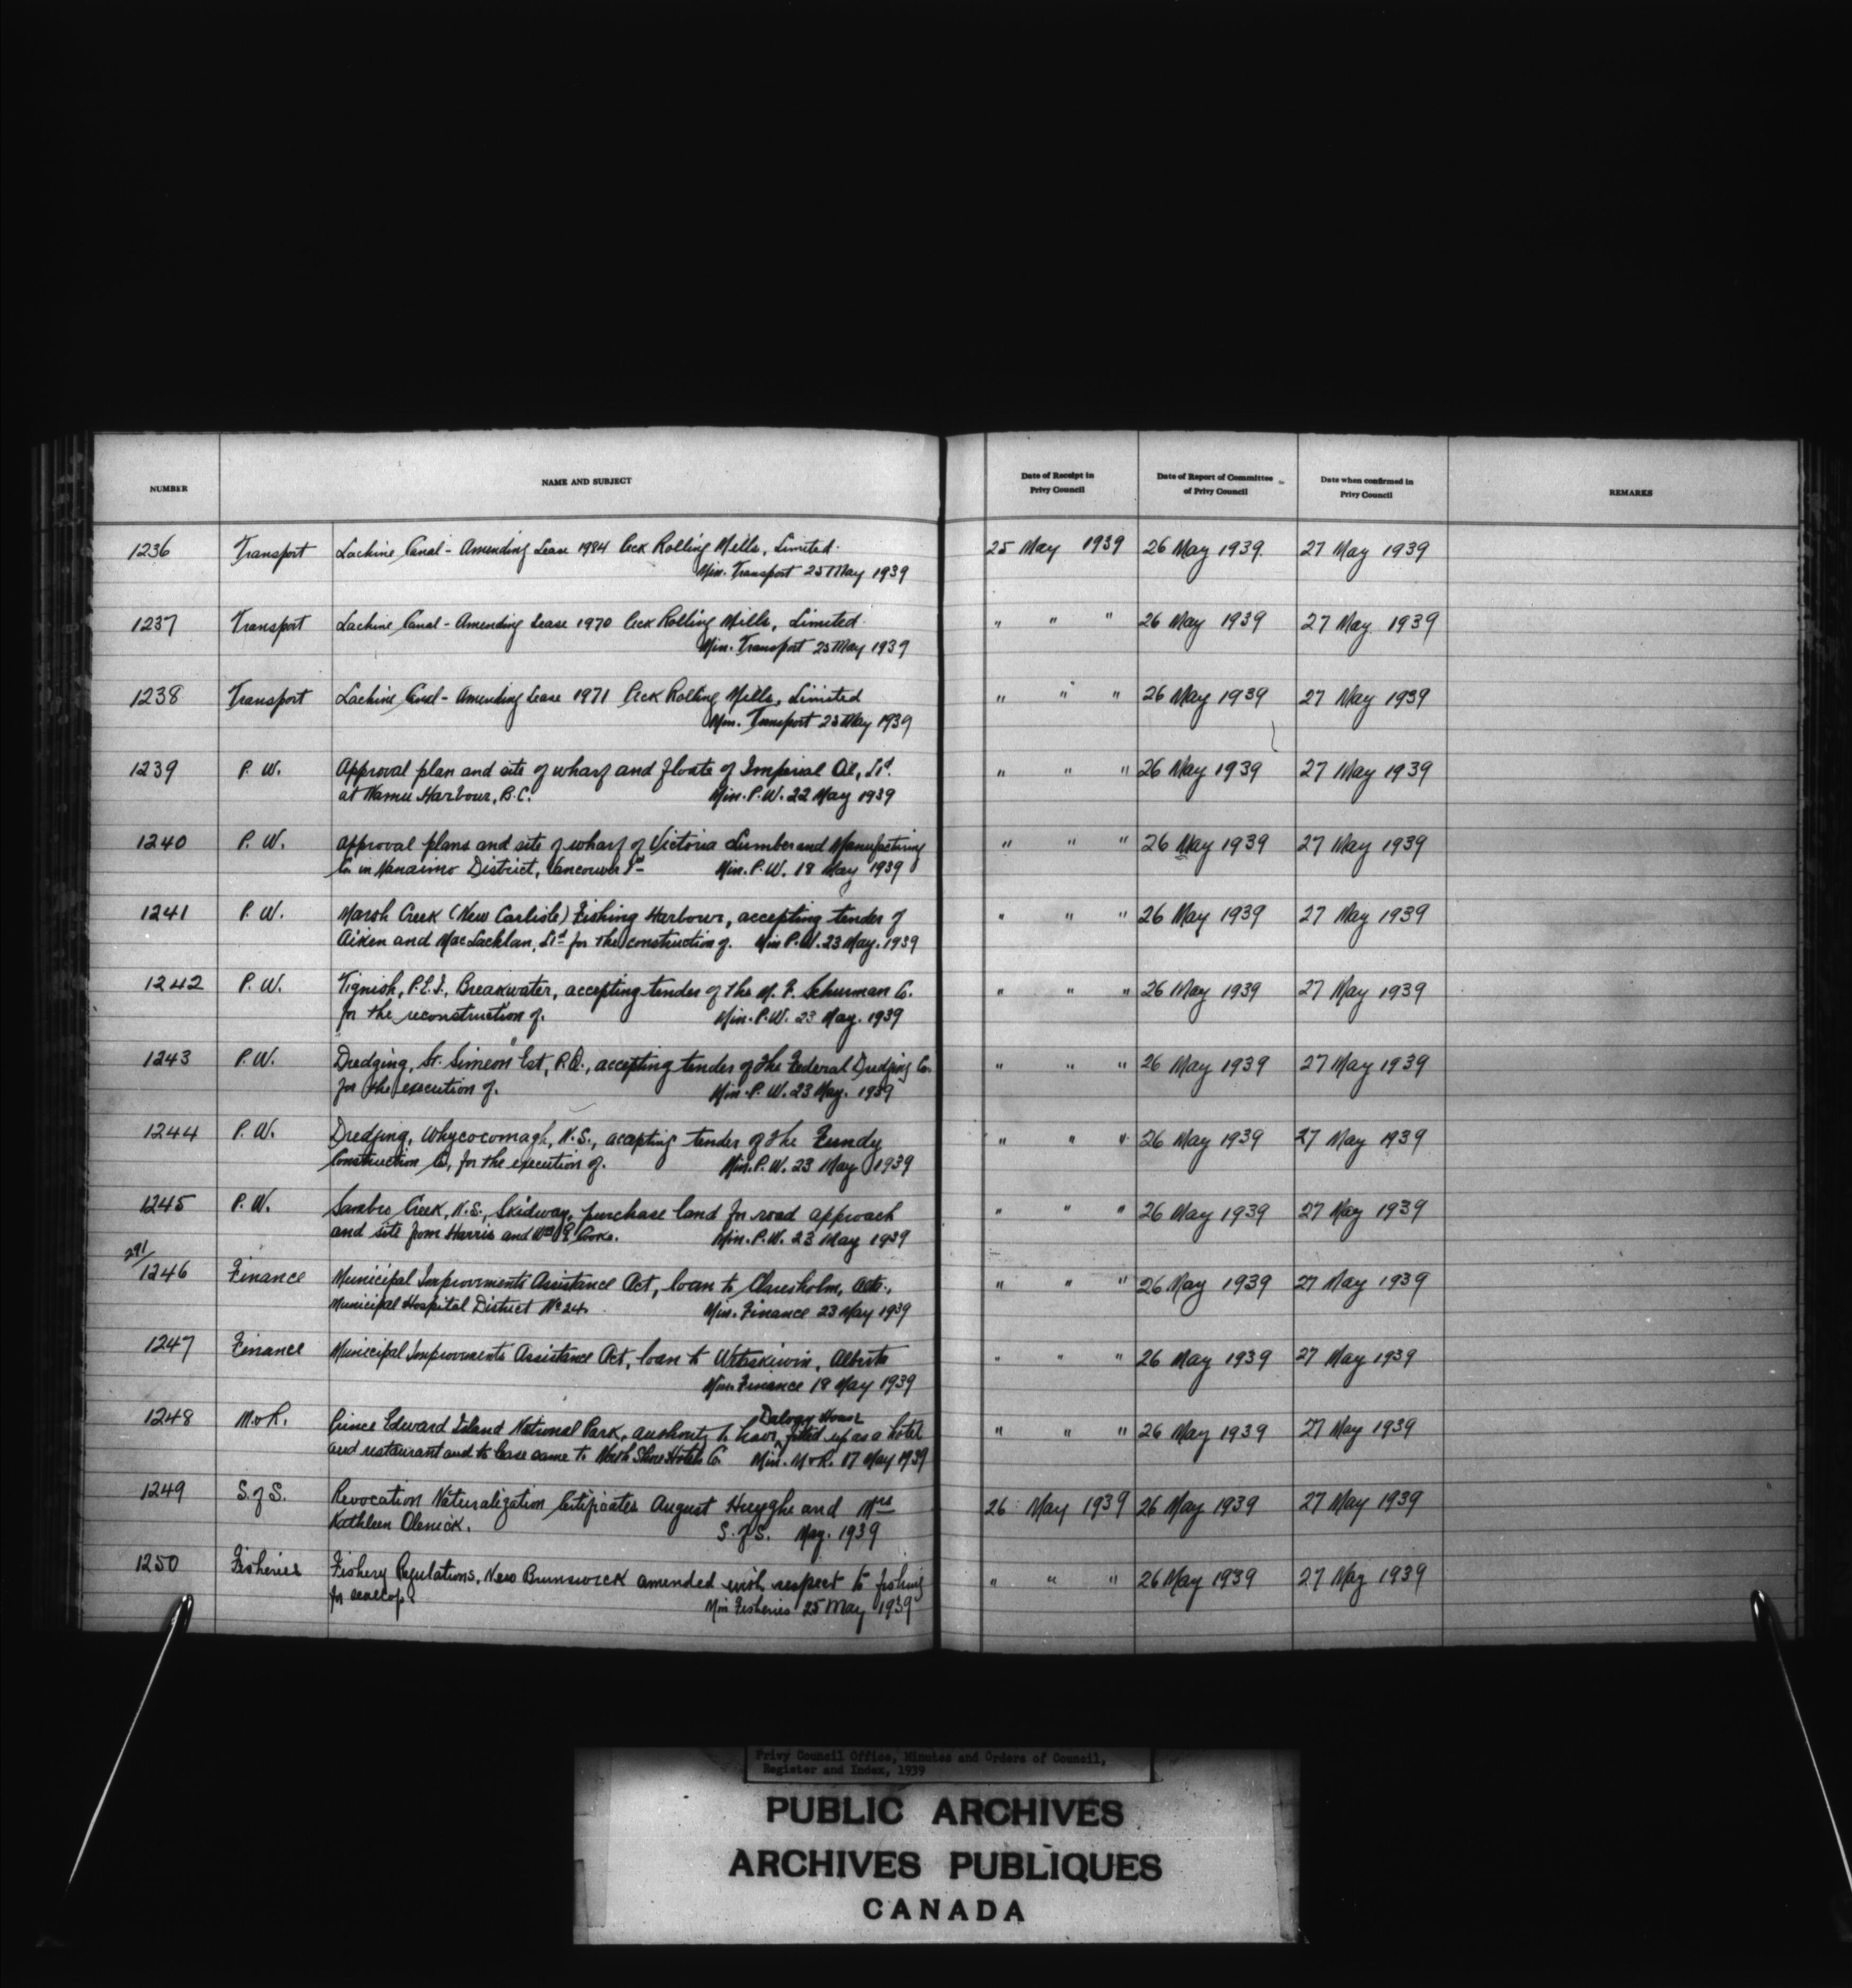 NUMBER NAME AND SUBJECT Date of Receipt in Privy Council Date of Report of Committee of Privy Council Date when confirmed in Privy Council REMARKS
1236 Transport Lachine Canal - Amending Lease 1984 Peck Rolling Mills, Limited. 25 May 1939 26 May 1939. 27 May 1939
Min. Transport 25 May 1939
1237 Transport Lachine Canal - Amending Lease 1970 Peck Rolling Mills, Limited. " " " 26 May 1939 27 May 1939
Min. Transport 25 May 1939
1238 Transport Lachine Canal - Amending Lease 1971 Peck Rolling Mills, Limited " " " 26 May 1939 27 May 1939
Min. Transport 25 May 1939
1239 P. W. Approval plan and site of wharf and floats of Imperial Oil, Ltd. " " " 26 May 1939 27 May 1939
at Namu Harbour, B.C. Min. P.W. 22 May 1939
1240 P. W. Approval plans and site of wharf of Victoria Lumber and Manufacturing " " " 26 May 1939 27 May 1939
Co. in Nanaimo District, Vancouver Id Min. P.W. 18 May 1939
1241 P. W. Marsh Creek (New Carlisle) Fishing Harbour, accepting tender of " " " 26 May 1939 27 May 1939
Aiken and MacLachlan, Ltd for the construction of. Min P.W. 23 May. 1939
1242 P. W. Tignish, P.E.I., Breakwater, accepting tender of the M. F. Schurman Co. " " " 26 May 1939 27 May 1939
for the reconstruction of. Min. P.W. 23 May. 1939
1243 P.W. Dredging, St. Simeon Est, P.Q., accepting tender of the Federal Dredging Co. " " " 26 May 1939 27 May 1939
for the execution of. Min. P. W. 23 May. 1939
1244 P.W. Dredging, Whycocomagh, N.S., accepting tender of the Fundy " " " 26 May 1939 27 May 1939
Construction Co, for the execution of. Min. P.W. 23 May 1939
1245 P.W. Sambro Creek, N.S., Skidway, purchase land for road approach " " " 26 May 1939 27 May 1939
and site from Harris and Cooke. Min. P.W. 23 May 1939
291/
1246 Finance Municipal Improvements Assistance Act, loan to Claresholm, Alta., " " " 26 May 1939 27 May 1939
Municipal Hospital District No 24. Min. Finance 23 May 1939
1247 Finance Municipal Improvements Assistance Act, loan to Wetaskiwin, Alberta " " " 26 May 1939 27 May 1939
Min. Finance 18 May 1939
Dalvay House
1248 M. & R. Prince Edward Island National Park, authority to have fitted up as a hotel " " " 26 May 1939 27 May 1939
and restaurant and to lease same to North Shore Hotels Co. Min. M & R. 17 May 1939
1249 S. of S. Revocation Naturalization Certificates August Huyghe and Mrs 26 May 1939 26 May 1939 27 May 1939
Kathleen Olenick. S. of S. May. 1939
1250 Fisheries Fishery Regulations, New Brunswick amended with respect to fishing " " " 26 May 1939 27 May 1939
for scallops Min Fisheries 25 May 1939
Privy Council Office, Minutes and Orders of Council,
Register and Index, 1939
PUBLIC ARCHIVES
ARCHIVES PUBLIQUES
CANADA